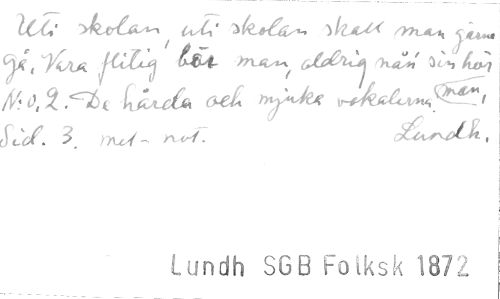 Uti skolan, uti skolan skall man gärna
gå. Vara flitig bör man, aldrig nån' sin hos
N:o, 2. De hårda och mjuka vokalerna. man,
Sid. 3. met- not. Lundh.
Lundh SGB Folksk 1872